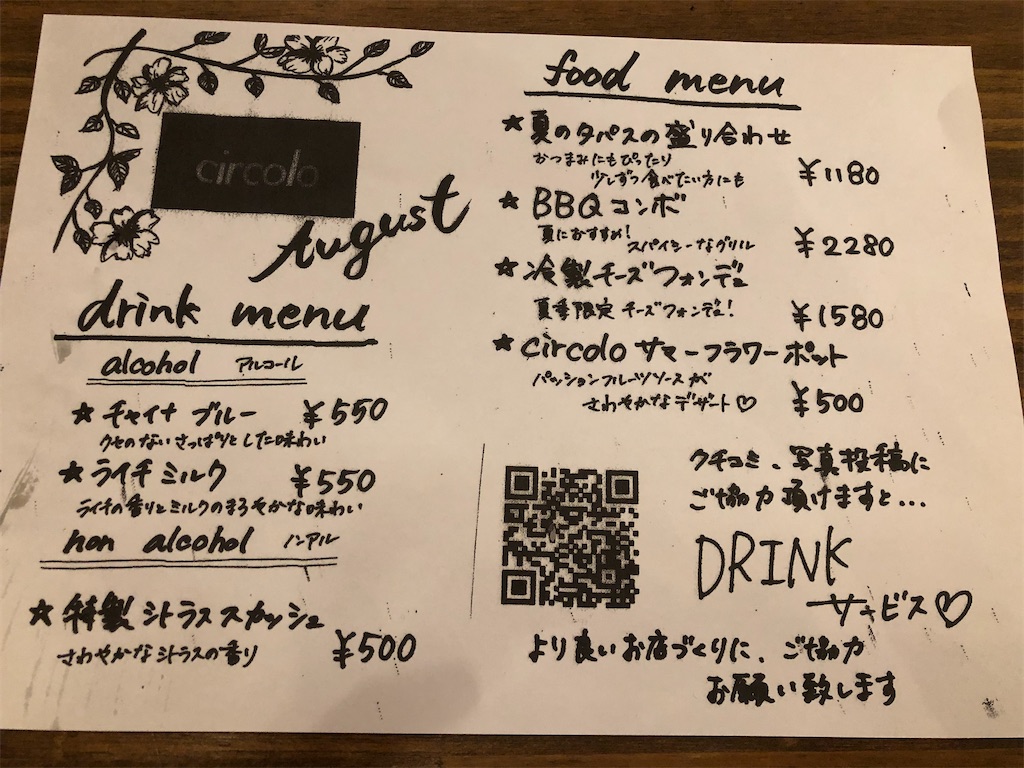 circolo
August
drink menu
alcohol アルコール
★ チャイナ ブルー ¥550
クセのない さっぱりとした味わい
★ ライチ ミルク ¥550
ライチの香りとミルクのまろやかな味わい
non alcohol ノンアル
★ 特製 シトラス スカッシュ ¥500
さわやかなシトラスの香り
food menu
★ 夏のタパスの盛り合わせ
おつまみにもぴったり
少しずつ食べたい方にも ¥1180
★ BBQコンボ
夏におすすめ!
スパイシーなグリル ¥2280
★ 冷製チーズフォンデュ
夏季限定チーズフォンデュ! ¥1580
★ circolo サマーフラワーポット
パッションフルーツソースが
さわやかなデザート♡ ¥500
クチコミ、写真投稿に
ご協力頂けますと...
DRINK
サービス♡
より良いお店づくりに、ご協力
お願い致します